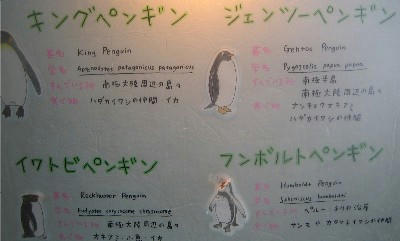 キングペンギン
英名 King Penguin
学名 Aptenodytes patagonicus patagonicus
すんでいる所 南極大陸周辺の島々
食べ物 ハダカイワシの仲間 イカ
ジェンツーペンギン
英名 Gentoo Penguin
学名 Pygoscelis papua papua
すんでいる所 南極半島
南極大陸周辺の島々
食べ物 ナンキョクオキアミ
ハダカイワシの仲間
イワトビペンギン
英名 Rockhopper Penguin
学名 Eudyptes chrysocome chrysocome
すんでいる所 南極大陸周辺の島々
食べ物 オキアミ 小魚 イカ
フンボルトペンギン
英名 Humboldt Penguin
学名 Spheniscus humboldti
すんでいる所 ペルー、チリの沿岸
食べ物 カタクチイワシの仲間